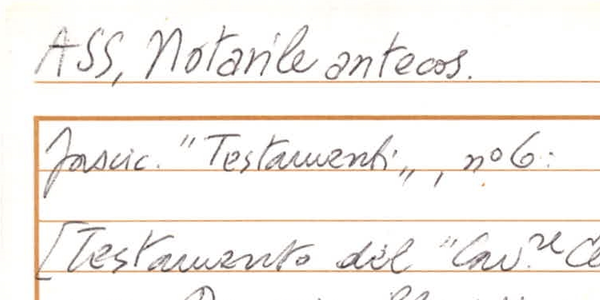 ASS, Notarile antecos.
Fascic. "Testamenti„, n° 6:
[Testamento del "Cav.re